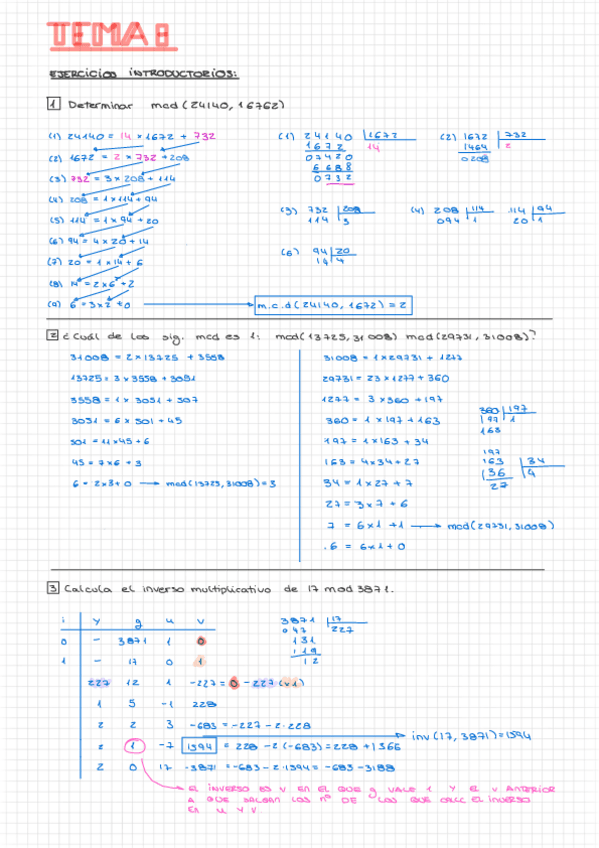 TEMA 1
EJERCICIOS INTRODUCTORIOS:
1 Determinar mcd (24140, 16762)
(1) 24140 = 14 × 1672 + 732
(2) 1672 = 2 × 732 + 208
(3) 732 = 3 × 208 + 114
(4) 208 = 1 × 114 + 94
(5) 114 = 1 × 94 + 20
(6) 94 = 4 × 20 + 14
(7) 20 = 1 × 14 + 6
(8) 14 = 2 × 6 + 2
(9) 6 = 3 × 2 + 0
m.c.d (24140, 1672) = 2
(1) 24140 1672
1672 14
07420
6688
0732
(2) 1672 732
1464 2
0208
(3) 732 208
114 3
(4) 208 114
094 1
114 94
20 1
(6) 94 20
14 4
2 ¿Cuál de los sig. mcd es 1: mcd (13725, 31008) mcd (29731, 31008)?
31008 = 2 × 13725 + 3558
13725 = 3 × 3558 + 3051
3558 = 1 × 3051 + 507
3051 = 6 × 501 + 45
501 = 11 × 45 + 6
45 = 7 × 6 + 3
6 = 2 × 3 + 0 → mcd (13725, 31008) = 3
31008 = 1 × 29731 + 1277
29731 = 23 × 1277 + 360
1277 = 3 × 360 + 197
360 = 1 × 197 + 163
197 = 1 × 163 + 34
163 = 4 × 34 + 27
34 = 1 × 27 + 7
27 = 3 × 7 + 6
7 = 6 × 1 + 1 → mcd (29731, 31008)
6 = 6 × 1 + 0
360 197
197 1
163
197
163 34
136 4
27
3 Calcula el inverso multiplicativo de 17 mod 3871.
i y g u v
0 - 3871 1 0
1 - 17 0 1
227 12 1 -227 = 0 - 227 (×1)
1 5 -1 228
2 2 3 -683 = -227 - 2 · 228
2 1 -7 1594 = 228 - 2 (-683) = 228 + 1366
inv (17, 3871) = 1594
2 0 17 -3871 = -683 - 2 · 1594 = -683 - 3188
3871 17
047 227
131
119
12
EL INVERSO ES V EN EL QUE g VALE 1 Y EL V ANTERIOR
A QUE SALGAN LOS Nº DE LOS QUE CALC EL INVERSO
EN U Y V